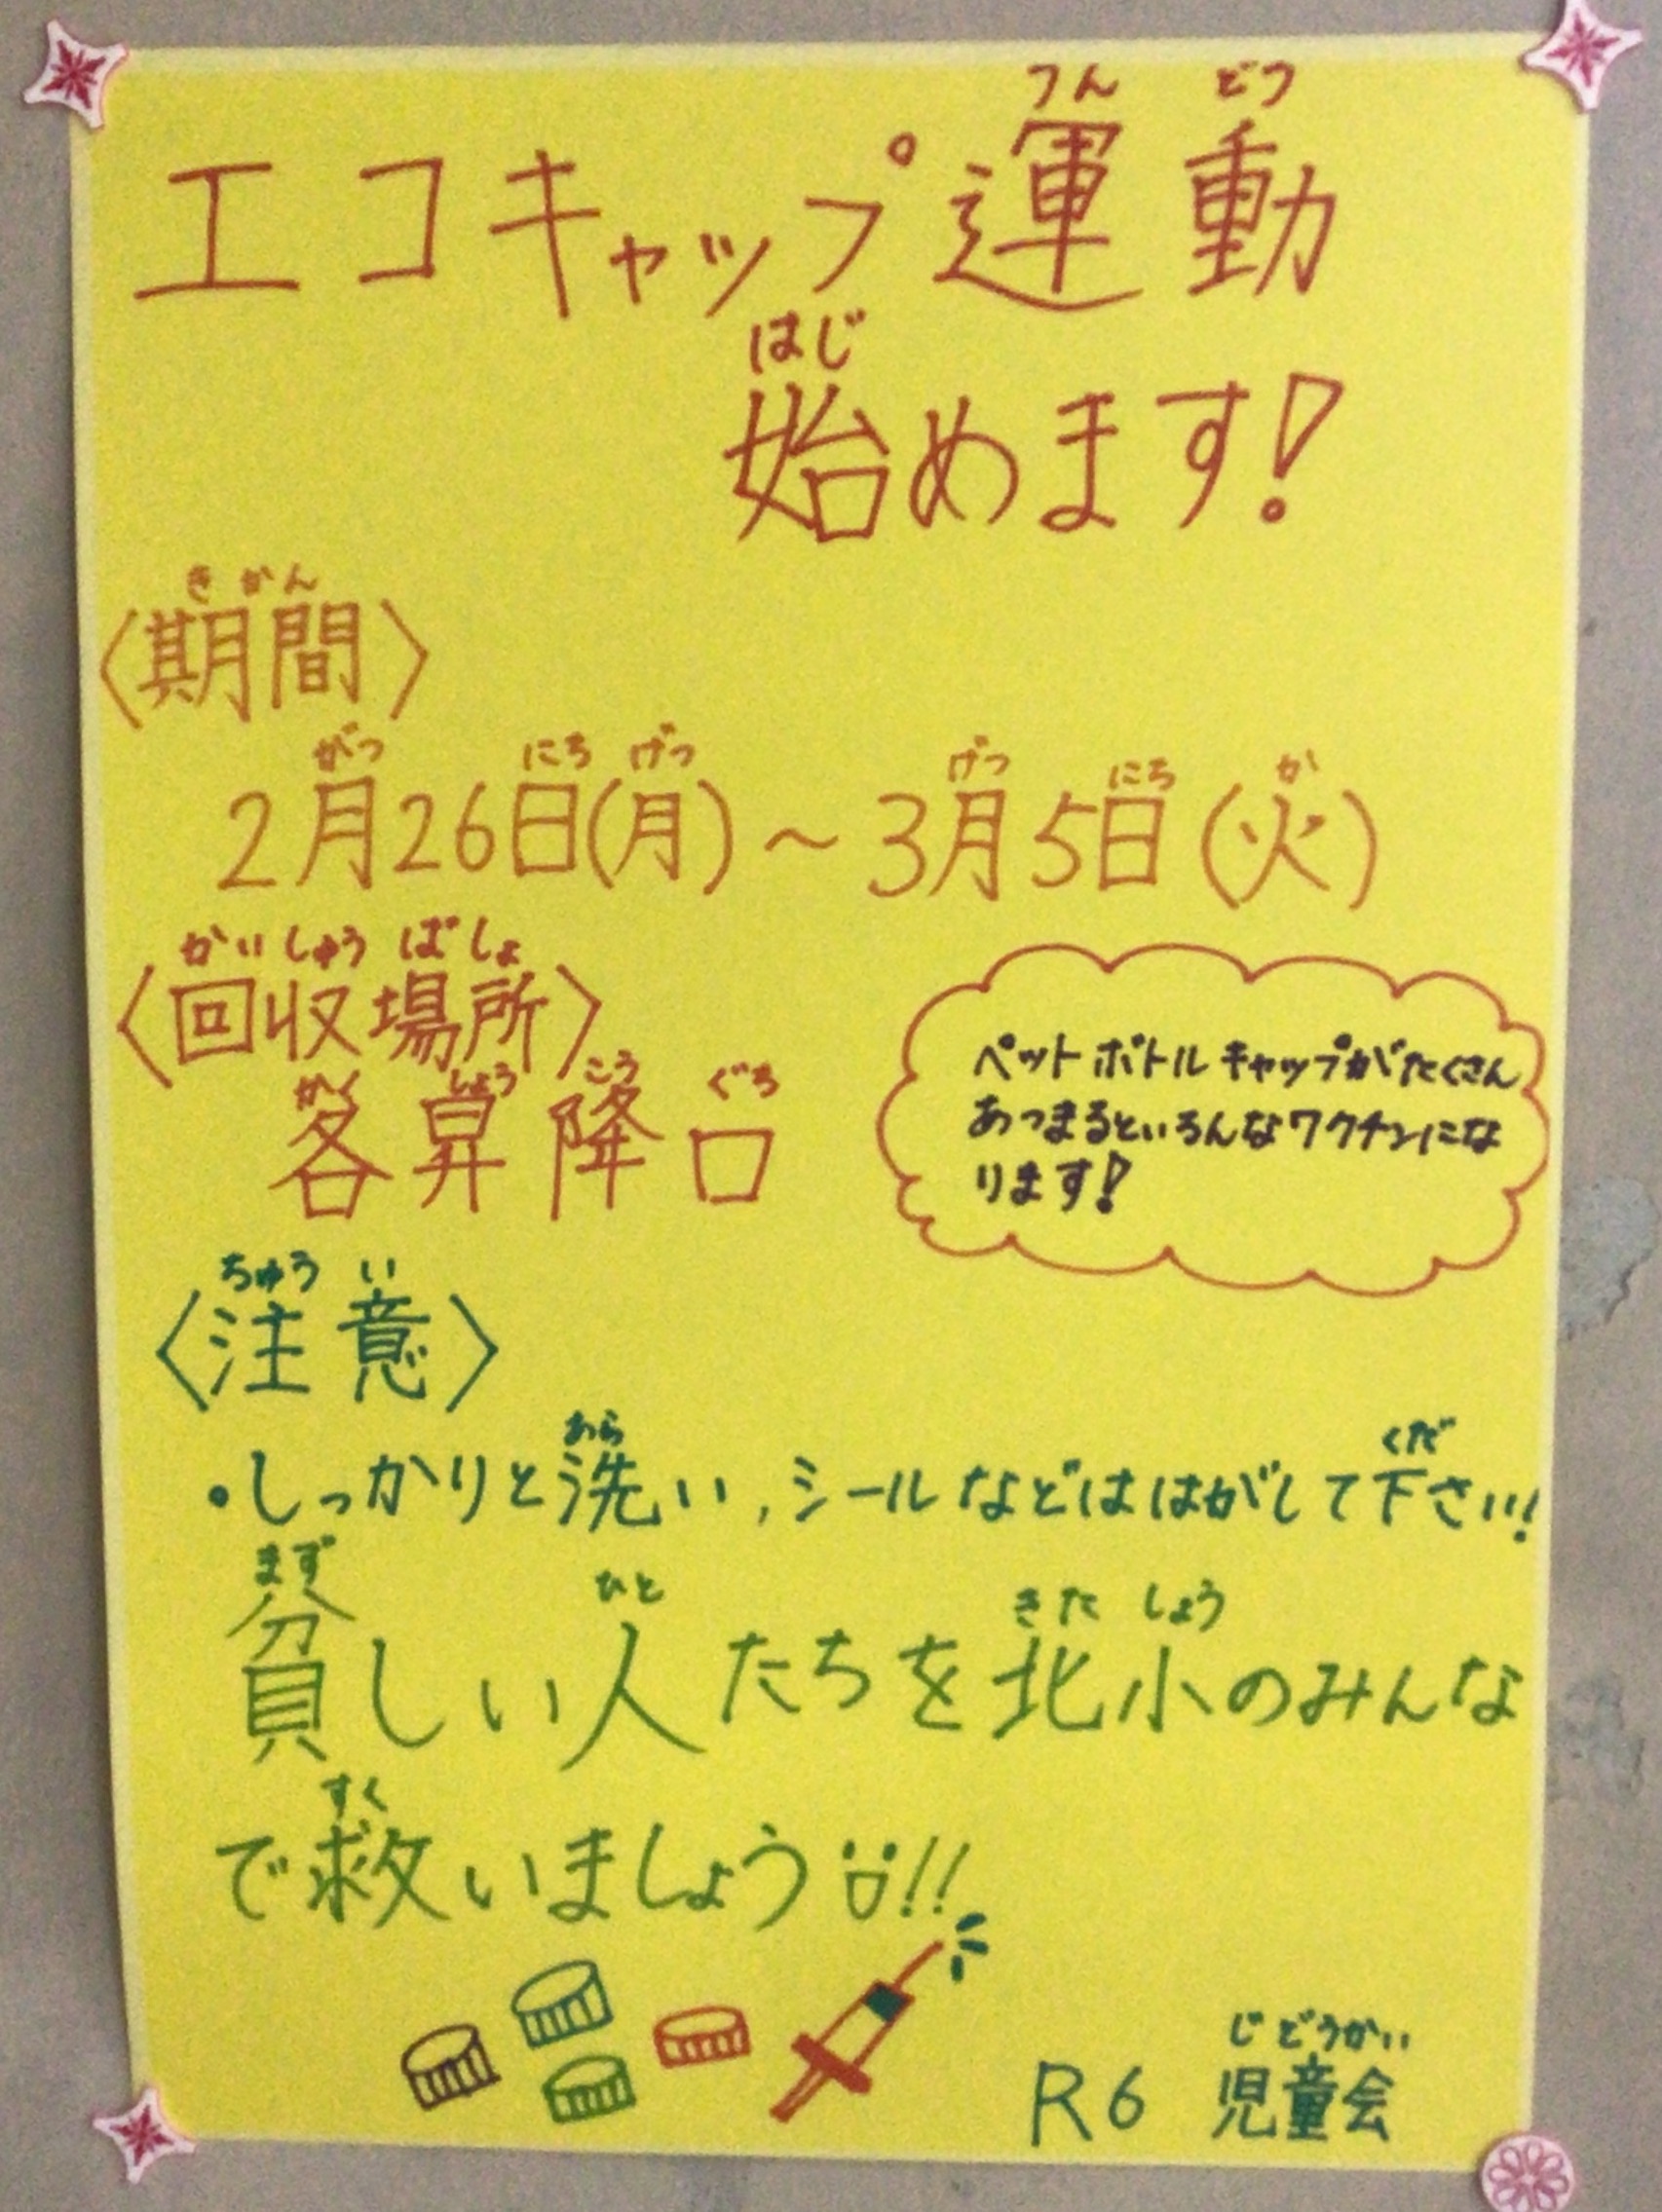 うん どう
エコキャップ運動
はじ
始めます!
きかん
〈期間〉
がつ にち げつ げつ にち か
2月26日(月)~3月5日(火)
かいしゅうばしょ
〈回収場所〉
かく しょう こう ぐち
各昇降口
ペットボトルキャップがたくさん
あつまるといろんなワクチンにな
ります!
ちゅうい
〈注意〉
あら くだ
・しっかりと洗い,シールなどははがして下さい!
まず ひと きた しょう
貧しい人たちを北小のみんな
すく
で救いましょう!!
じどうかい
R6 児童会